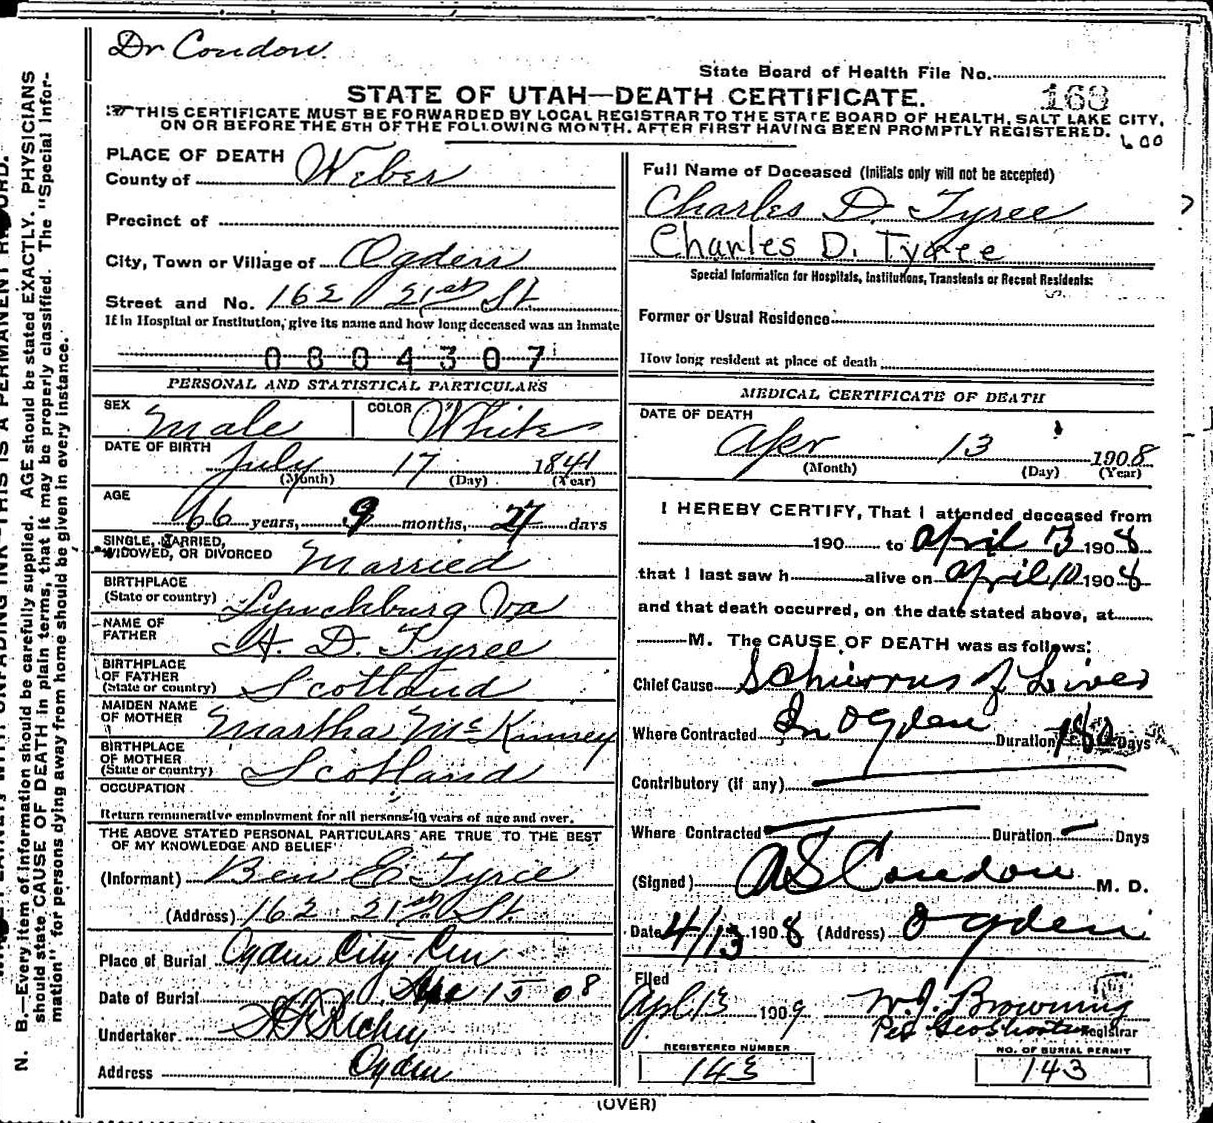 Dr Condon.
State Board of Health File No.
163
STATE OF UTAH—DEATH CERTIFICATE.
THIS CERTIFICATE MUST BE FORWARDED BY LOCAL REGISTRAR TO THE STATE BOARD OF HEALTH, SALT LAKE CITY,
ON OR BEFORE THE 5TH OF THE FOLLOWING MONTH. AFTER FIRST HAVING BEEN PROMPTLY REGISTERED.
600
PLACE OF DEATH
County of Weber
Precinct of
City, Town or Village of Ogden
Street and No. 162 21st St
If in Hospital or Institution, give its name and how long deceased was an Inmate
0804307
PERSONAL AND STATISTICAL PARTICULARS
SEX Male COLOR White
DATE OF BIRTH
July 17 1841
(Month) (Day) (Year)
AGE
66 years, 9 months, 27 days
SINGLE, MARRIED,
WIDOWED, OR DIVORCED Married
BIRTHPLACE
(State or country) Lynchburg Va
NAME OF
FATHER H. D. Tyree
BIRTHPLACE
OF FATHER
(State or country) Scotland
MAIDEN NAME
OF MOTHER Martha McKinney
BIRTHPLACE
OF MOTHER
(State or country) Scotland
OCCUPATION
Return remunerative employment for all persons 10 years of age and over.
THE ABOVE STATED PERSONAL PARTICULARS ARE TRUE TO THE BEST
OF MY KNOWLEDGE AND BELIEF
(Informant) Ben E Tyree
(Address) 162 21st St
Place of Burial Ogden City Cem
Date of Burial Apr 15 08
Undertaker Richey
Address Ogden
Full Name of Deceased (Initials only will not be accepted)
Charles D. Tyree
Charles D. Tyree
Special Information for Hospitals, Institutions, Transients or Recent Residents:
Former or Usual Residence
How long resident at place of death
MEDICAL CERTIFICATE OF DEATH
DATE OF DEATH
Apr 13 1908
(Month) (Day) (Year)
I HEREBY CERTIFY, That I attended deceased from
190 to April 13 1908
that I last saw h alive on April 10 1908
and that death occurred, on the date stated above, at
M. The CAUSE OF DEATH was as follows:
Chief Cause Schirrus of Liver
Where Contracted In Ogden Duration 180 Days
Contributory (if any)
Where Contracted Duration Days
(Signed) AS Condon M. D.
Date 4/13 1908 (Address) Ogden
Filed
Apl 13 1909 W. J. Browning
Per Geo Shorten Registrar
REGISTERED NUMBER
143
NO. OF BURIAL PERMIT
143
(OVER)
N. B.—Every item of information should be carefully supplied. AGE should be stated EXACTLY. PHYSICIANS
should state CAUSE OF DEATH in plain terms, that it may be properly classified. The "Special Infor-
mation" for persons dying away from home should be given in every instance.